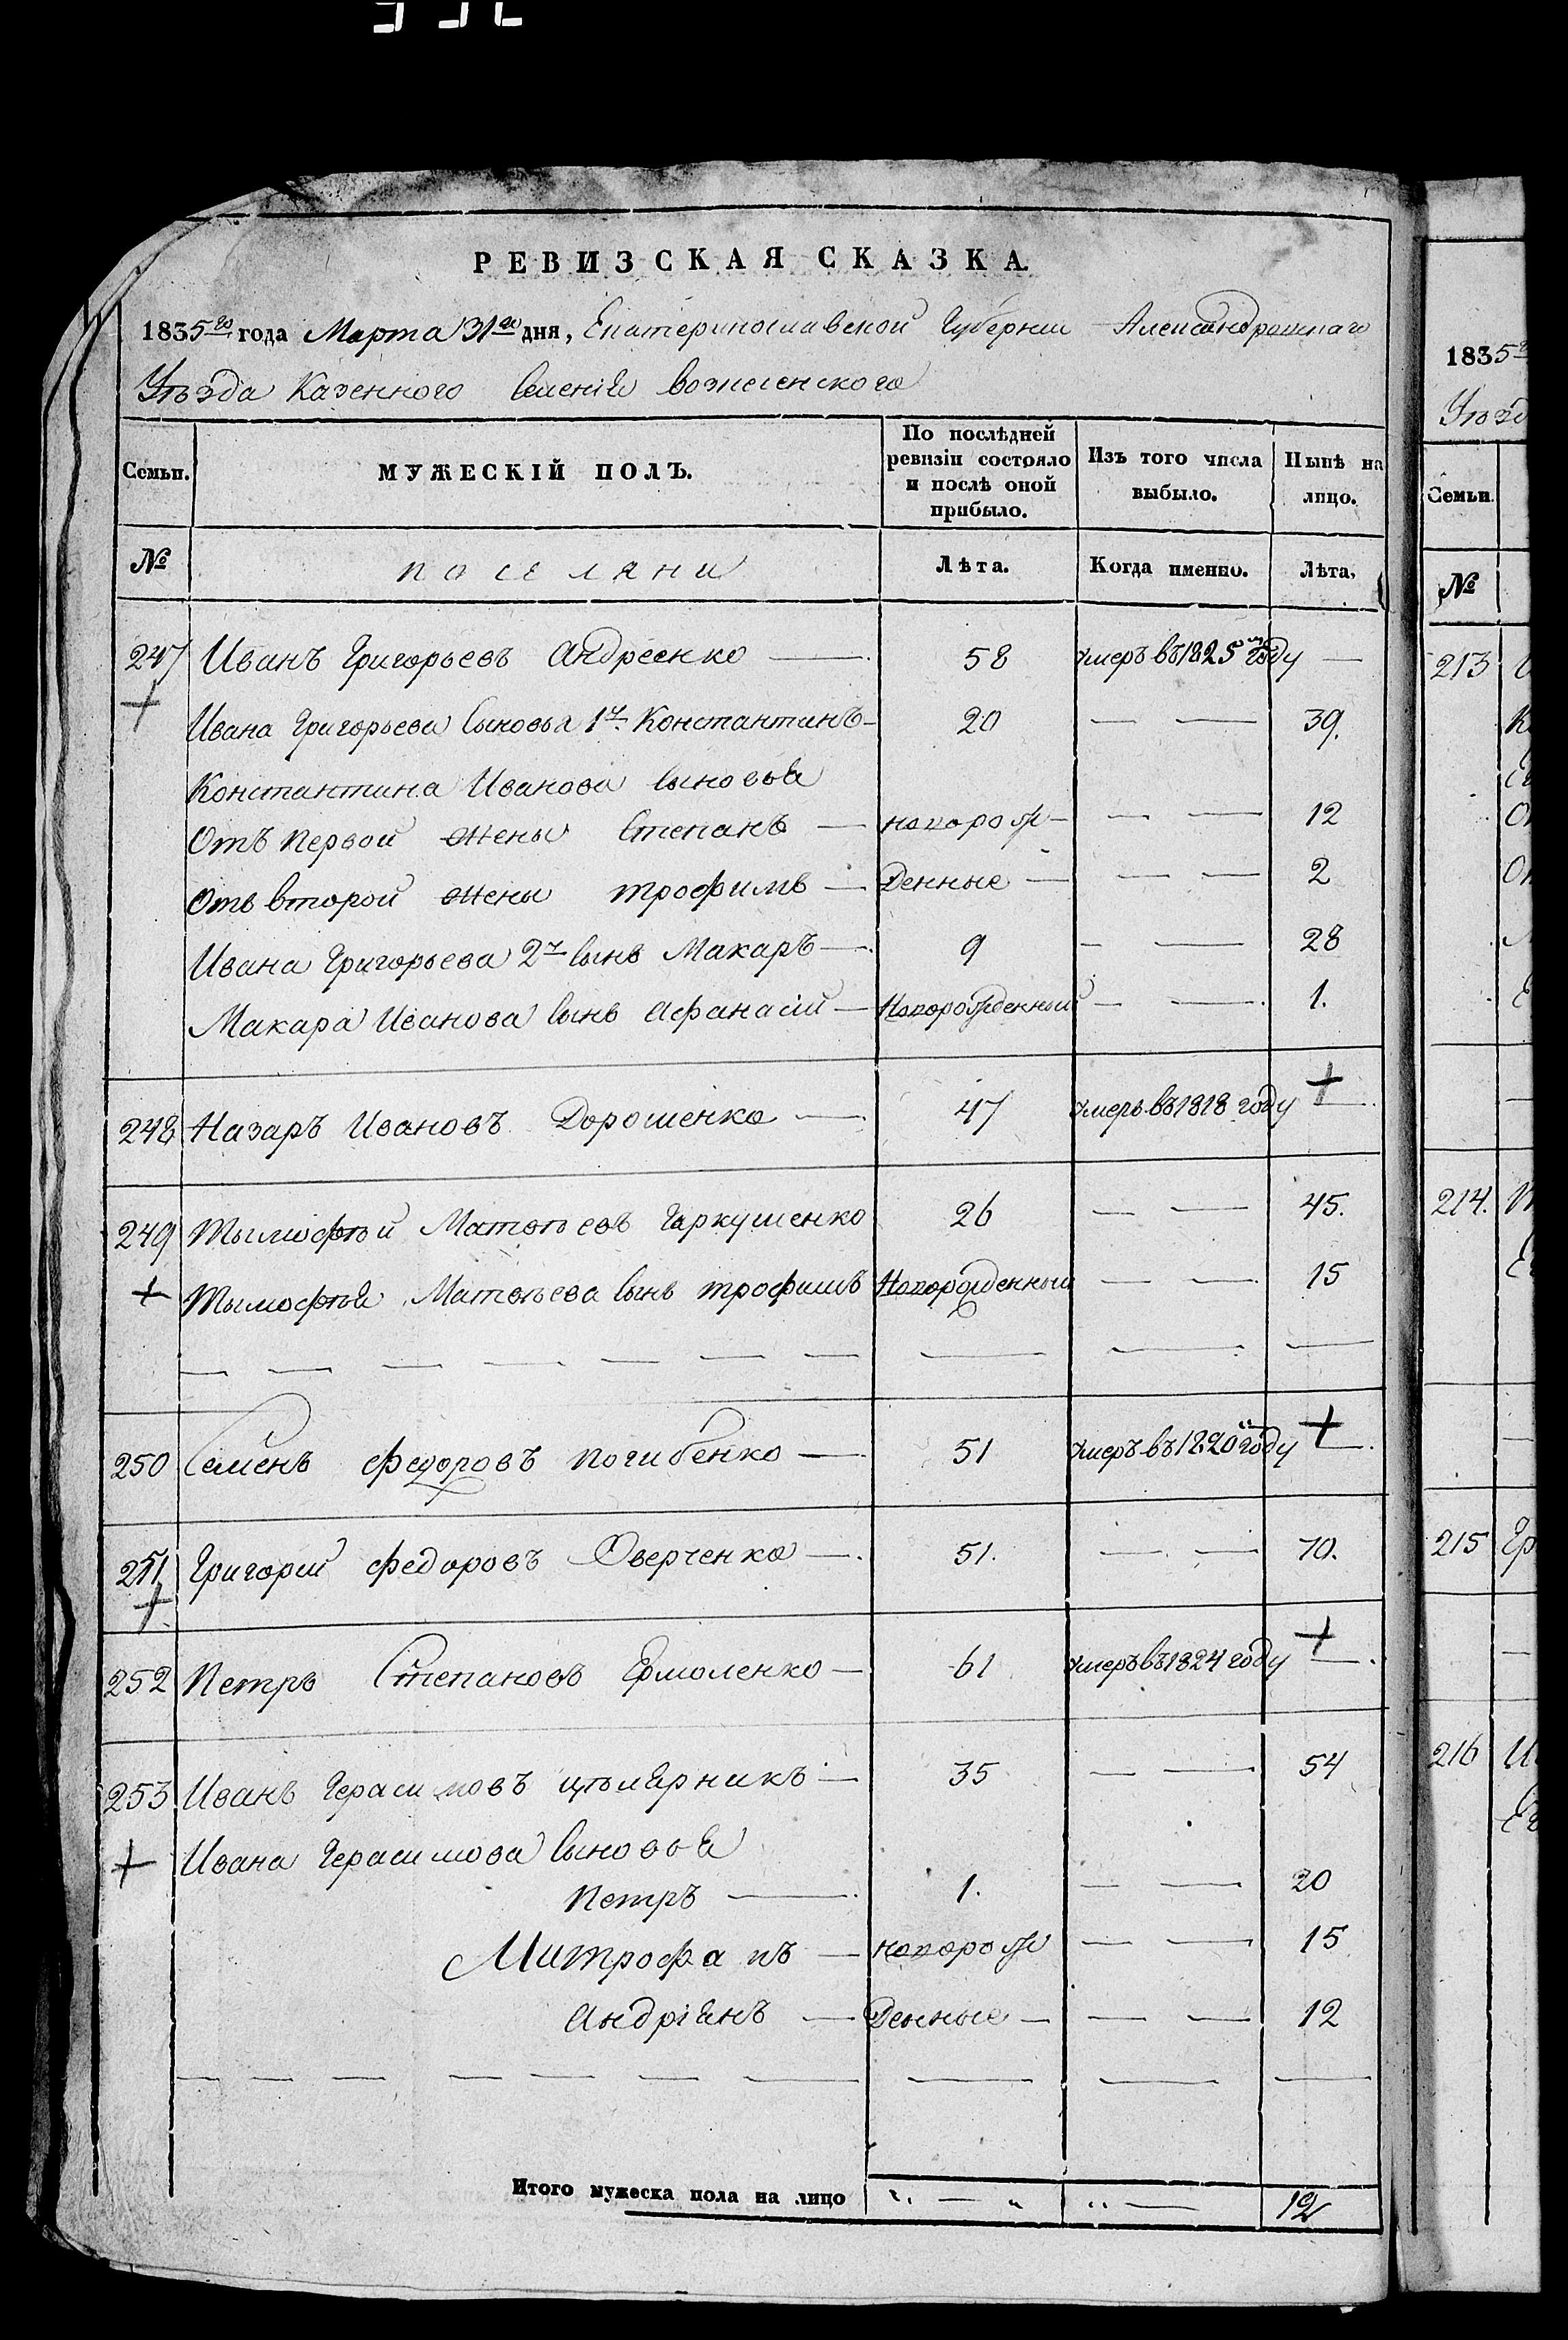 РЕВИЗСКАЯ СКАЗКА.
1835го года Марта 31го дня, Екатеринославской Губернии Александровскаго
Уѣзда Казенного Селенія вознесенского
Семьи. МУЖЕСКІЙ ПОЛЪ. По послѣдней ревизіи состояло и послѣ оной прибыло. Изъ того числа выбыло. Нынѣ на лицо.
№ поселяни Лѣта. Когда именно. Лѣта.
247 Иванъ Григорьевъ Андреенко — 58 умеръ въ 1825м году —
Ивана Григорьева Сыновья 1й Константинъ — 20 — — 39.
Константина Иванова сыновья
Отъ первой жены Степанъ — новорож — — — 12
Отъ второй жены трофимъ — Денные — — — 2
Ивана Григорьева 2й сынъ Макаръ — 9 — — 28
Макара Иванова сынъ Афанасій — Новорожденный — — 1.
248 Назаръ Ивановъ Дорошенко — 47 умеръ въ 1818 году —
249 Тымофѣй Матвѣевъ Гаркушенко 26 — — 45.
Тымофѣя Матвѣева сынъ трофимъ Новорожденный — — 15
250 Семенъ федоровъ погибенко — 51 умеръ въ 1820м году —
251 Григорій федоровъ Оверченко — 51. — — 70.
252 Петръ Степановъ Ермоленко — 61 умеръ въ 1824 году —
253 Иванъ Герасимовъ — 35 — — 54
Ивана Герасимова сыновья
Петръ — 1. — — 20
Митрофанъ — новорож — — 15
Андріянъ — Денные — — — 12
Итого мужеска пола на лицо 12
1835г
Уѣзд
Семьи.
№
213
214.
215 Гр
216